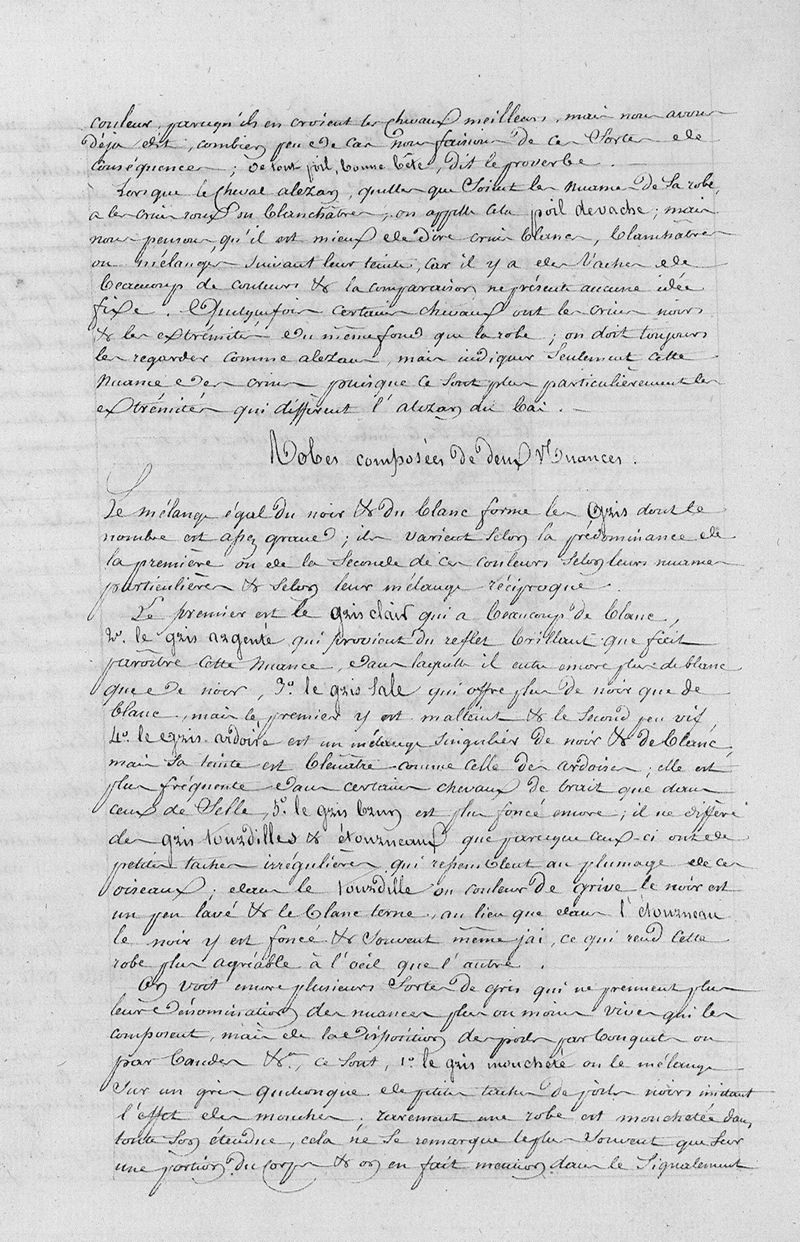 couleur, parcequ'ils en croient les chevaux meilleurs, mais nous avons
déja dit, combien peu de cas nous faisions de ces sortes de
conséquences; de tout poil, bonne bête, dit le proverbe.
Lorsque le cheval alezan, quelles que soient les nuances de sa robe,
a les crins roux ou blanchâtres, on appelle cela poil de vache; mais
nous pensons qu'il est mieux de dire crins blancs, blanchâtres
ou mélangés suivant leur teinte, car il y a des vaches de
beaucoup de couleurs & la comparaison ne présente aucune idée
fixe. Quelquefois certains chevaux ont les crins noirs
& les extrémités du même fond que la robe; on doit toujours
les regarder comme alezans, mais indiquer seulement cette
nuance des crins puisque ce sont plus particulièrement les
extrémités qui différent l'alezan du bai.
Robes composées de deux nuances.
Le mélange égal du noir & du blanc forme les gris dont le
nombre est assez grand; ils varient selon la prédominance de
la première ou de la seconde de ces couleurs selon leurs nuances
particulières & selon leur mélange réciproque.
Le premier est le gris clair qui a beaucoup de blanc,
2.º le gris argenté qui provient du reflet brillant que fait
paroître cette nuance, dans laquelle il entre encore plus de blanc
que de noir, 3.º le gris sale qui offre plus de noir que de
blanc, mais le premier y est mal teint & le second peu vif,
4.º le gris ardoise est un mélange singulier de noir & de blanc,
mais sa teinte est bleuâtre comme celle des ardoises; elle est
plus fréquente dans certains chevaux de trait que dans
ceux de selle, 5.º le gris brun est plus foncé encore; il ne diffère
des gris tourdilles & étourneaux que parceque ceux-ci ont de
petites taches irrégulières qui ressemblent au plumage de ces
oiseaux; dans le tourdille ou couleur de grive le noir est
un peu lavé & le blanc terne, au lieu que dans l'étourneau
le noir y est foncé & souvent même jai, ce qui rend cette
robe plus agréable à l'oeil que l'autre.
On voit encore plusieurs sortes de gris qui ne prennent plus
leurs dénominations des nuances plus ou moins vives qui les
composent, mais de la disposition des poils par bouquets ou
par bandes &.ª, ce sont, 1.º le gris moucheté ou le mélange
sur un gris quelconque de petites taches de poils noirs imitant
l'effet des mouches; rarement une robe est mouchetée dans
toute son étendue, cela ne se remarque le plus souvent que sur
une portion du corps & on en fait mention dans le signalement